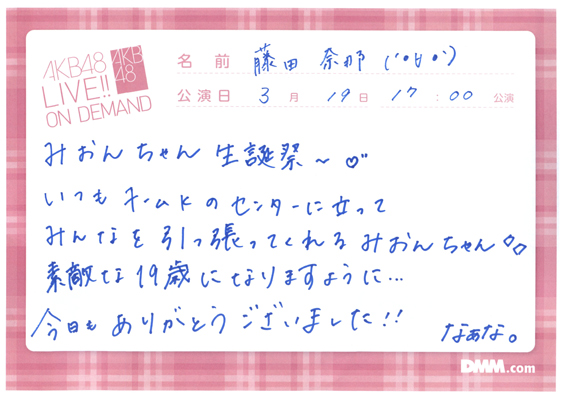 AKB48
LIVE!!
ON DEMAND
AKB
48
名前 藤田 奈那 (´●∀●`)
公演日 3月19日 17:00 公演
みおんちゃん 生誕祭～♡
いつもチームKのセンターに立って
みんなを引っ張ってくれるみおんちゃん◇◇
素敵な19歳になりますように...
今日もありがとうございました!!
なぁな。
DMM.com